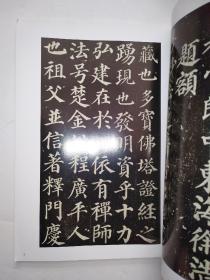 郎中東海徐浩
題額
藏也多寶佛塔證經之
踴現也發明資乎十力
弘建在於四依有禪師
法号楚金姓程廣平人
也祖父並信著釋門慶